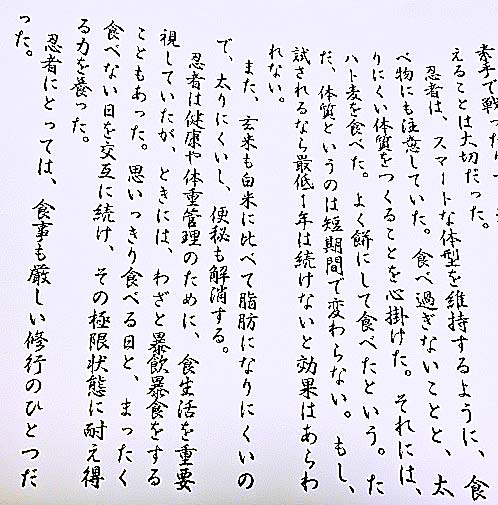 素手で戦ったり
えることは大切だった。
忍者は、スマートな体型を維持するように、食
べ物にも注意していた。食べ過ぎないことと、太
りにくい体質をつくることを心掛けた。それには、
ハト麦を食べた。よく餅にして食べたという。た
だ、体質というのは短期間で変わらない。もし、
試されるなら最低1年は続けないと効果はあらわ
れない。
また、玄米も白米に比べて脂肪になりにくいの
で、太りにくいし、便秘も解消する。
忍者は健康や体重管理のために、食生活を重要
視していたが、ときには、わざと暴飲暴食をする
こともあった。思いっきり食べる日と、まったく
食べない日を交互に続け、その極限状態に耐え得
る力を養った。
忍者にとっては、食事も厳しい修行のひとつだ
った。